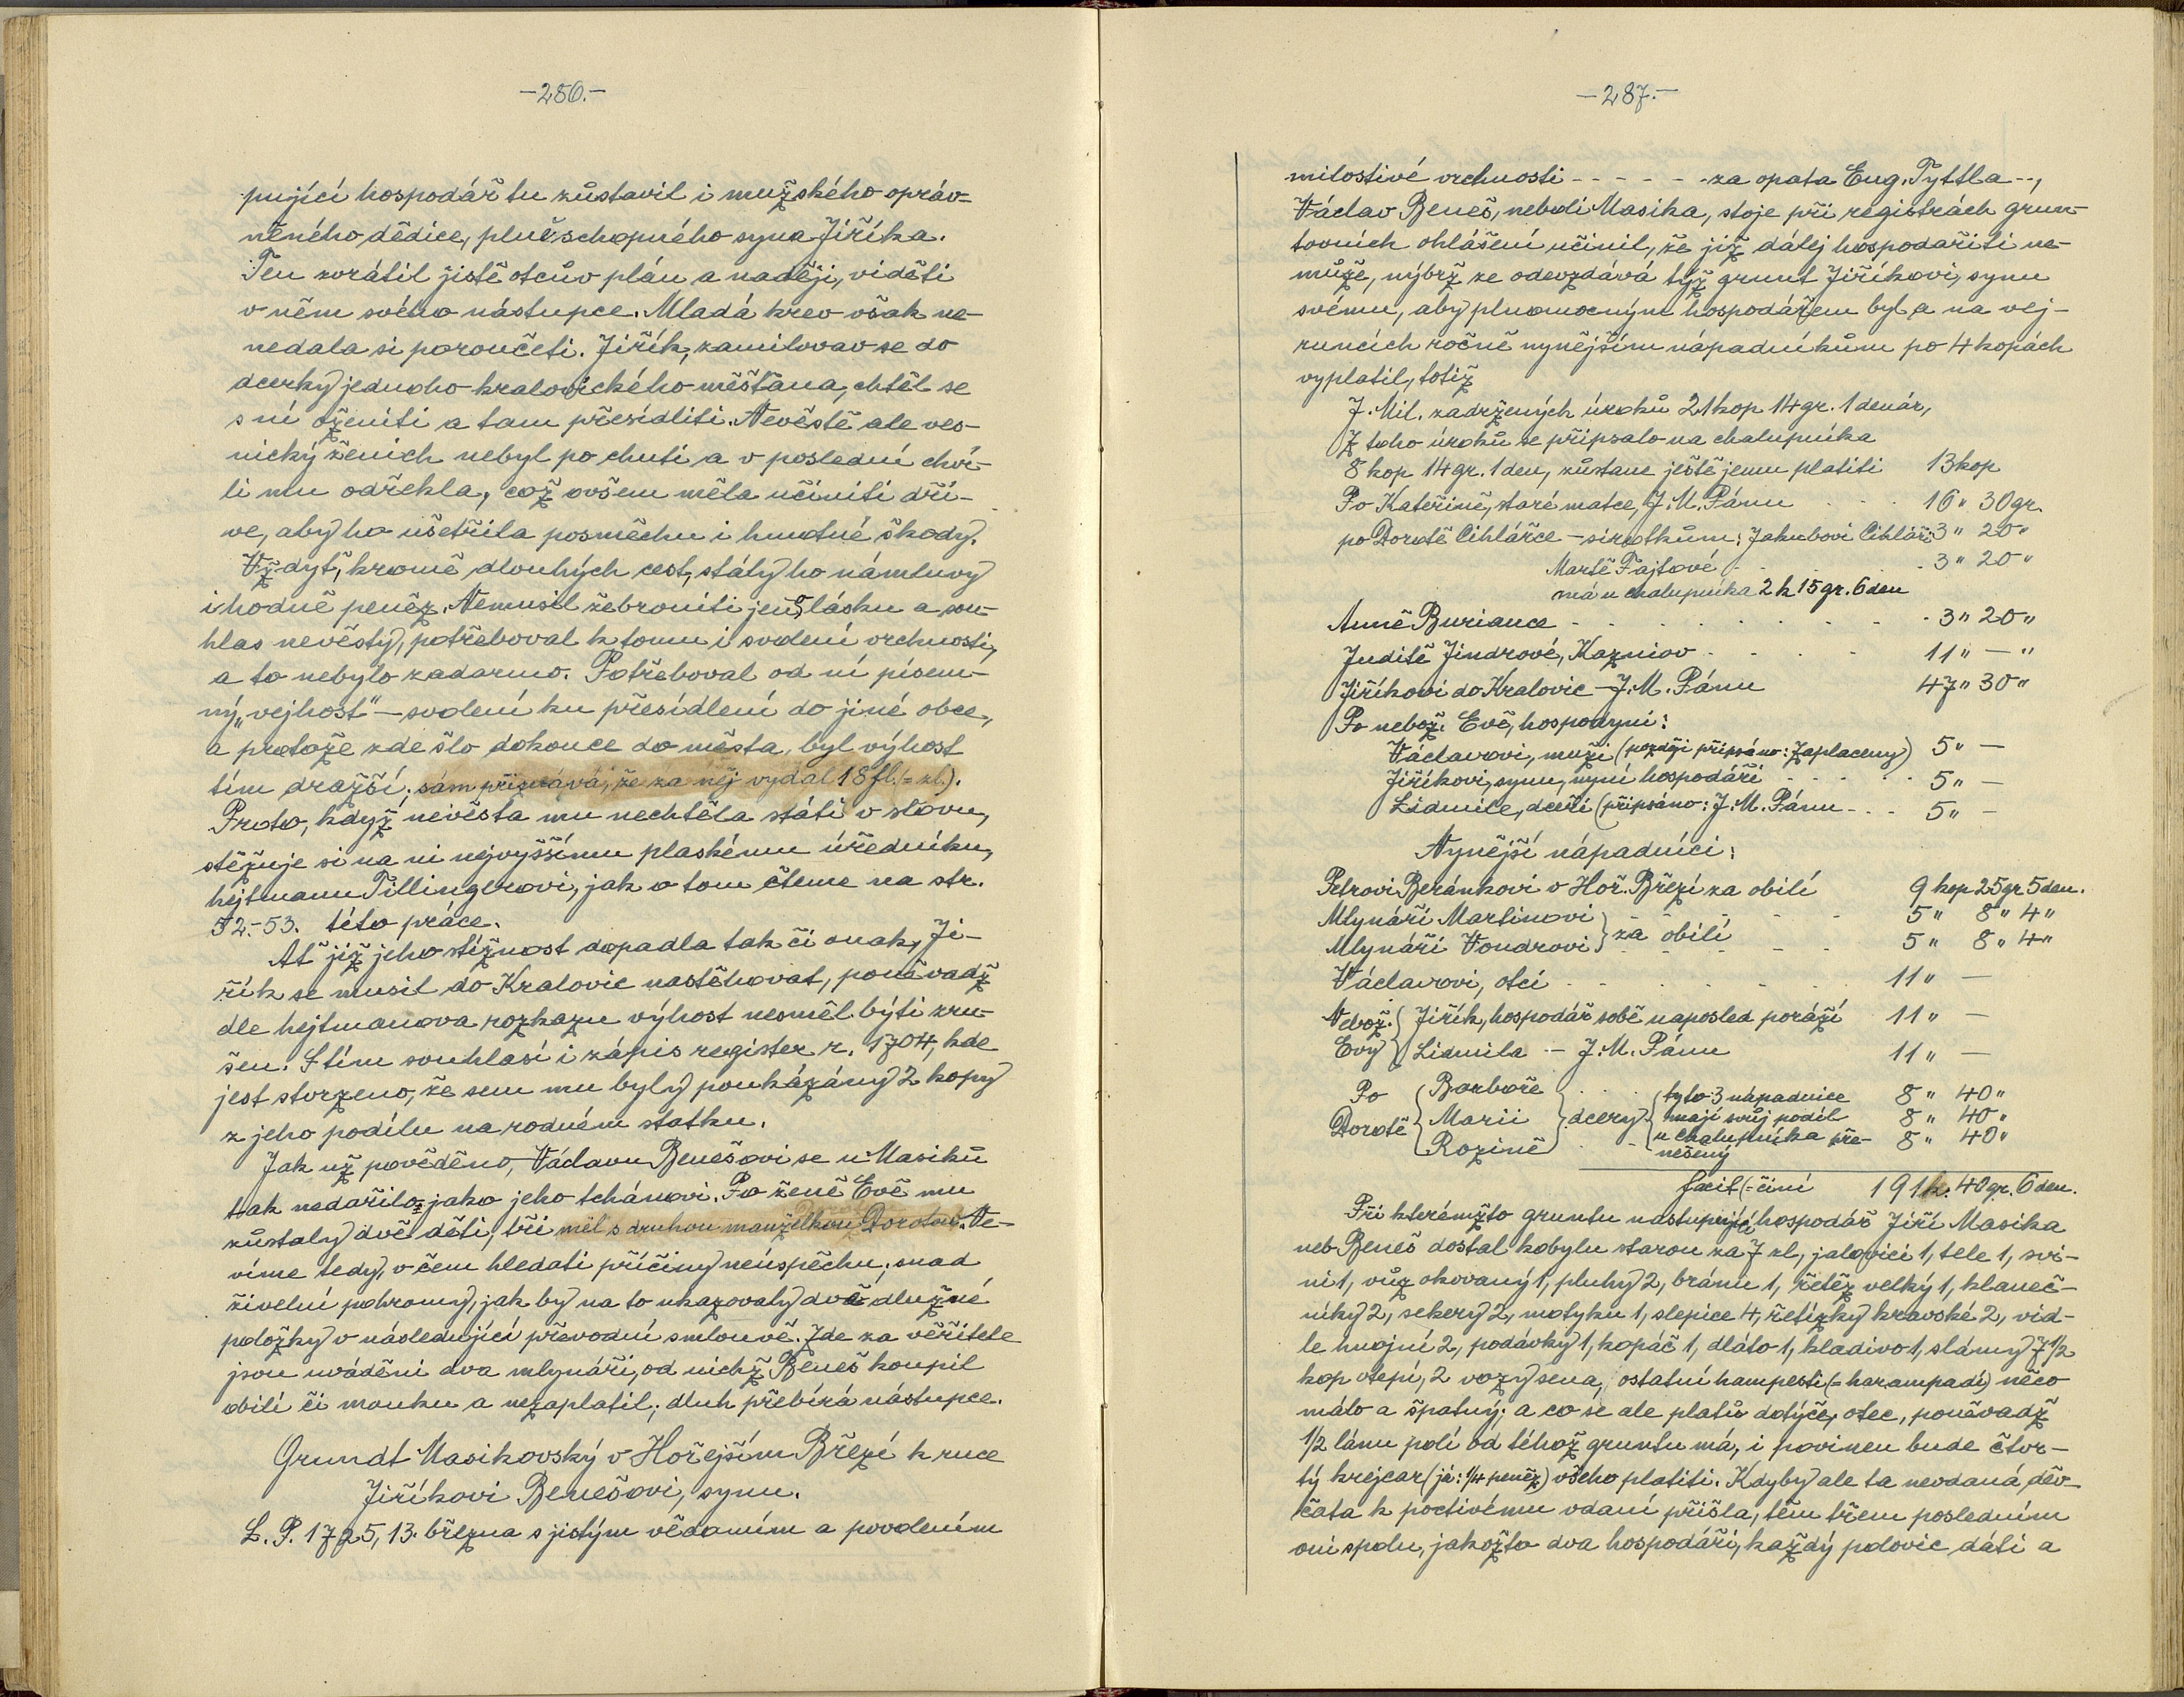 -286.-
pující hospodář tu zůstavil i mužského opráv-
něného dědice, plněschopného syna Jiříka.
Ten zvrátil jistě otcův plán a naději, viděti
v něm svého nástupce. Mladá krev však ne-
nedala si poroučeti. Jiřík, zamilovav se do
dcerky jednoho kralovického měšťana, chtěl se
s ní oženiti a tam přesídliti. Nevěstě ale ves-
nický ženich nebyl po chuti a v poslední chví-
li mu odřekla, což ovšem měla učiniti dří-
ve, aby ho ušetřila posměchu i hmotné škody.
Vždyť, kromě dlouhých cest, stály ho námluvy
i hodně peněz. Nemusil žebroniti jen o lásku a sou-
hlas nevěsty, potřeboval k tomu i svolení vrchnosti,
a to nebylo zadarmo. Potřeboval od ní písem-
ný „vejhost" – svolení ku přesídlení do jiné obce,
a protože zde šlo dokonce do města, byl výhost
tím dražší; sám přiznává, že za něj vydal 18 fl. (= zl.).
Proto, když nevěsta mu nechtěla státi v slovu,
stěžuje si na ni nejvyššímu plaskému úředníku,
hejtmanu Tillingerovi, jak o tom čteme na str.
52.-53. této práce.
Ať již jeho stížnost dopadla tak či onak, Ji-
řík se musil do Kralovic nastěhovat, poněvadž
dle hejtmanova rozkazu výhost nesměl býti zru-
šen. S tím souhlasí i zápis register r. 1704, kde
jest stvrzeno, že sem mu byly poukázány 2 kopy
z jeho podílu na rodném statku.
Jak už pověděno, Václavu Benešovi se u Masiků
tak nedařilo, jako jeho tchánovi. Po ženě Evě mu
zůstaly dvě děti, tři měl s druhou manželkou Dorotou. Ne-
víme tedy, v čem hledati příčiny neúspěchu; snad
živelní pohromy, jak by na to ukazovaly dvě dlužné
položky v následující převodní smlouvě. Zde za věřitele
jsou uváděni dva mlynáři, od nichž Beneš koupil
obilí či mouku a nezaplatil; dluh přebírá nástupce.
Grundt Masikovský v Hořejším Březí k ruce
Jiříkovi Benešovi, synu.
L. P. 1725, 13. března s jistým vědomím a povolením
-287.-
milostivé vrchnosti - - - - - - za opata Eug. Tyttla - -,
Václav Beneš, neboli Masika, stoje při registrách grun-
tovních ohlášení učinil, že již dálej hospodařiti ne-
může, nýbrž že odevzdává týž grunt Jiříkovi, synu
svému, aby plnomocným hospodářem byl a na vej-
runcích ročně nynějším nápadníkům po 4 kopách
vyplatil, totiž
J. Mil. zadržených úroků 21 kop 14 gr. 1 denár,
Z toho úroků se připsalo na chalupníka
8 kop 14 gr. 1 den, zůstane ještě jemu platiti 13 kop
Po Kateřině, staré matce, J. M. Pánu - - - 16 " 30 gr.
po Dorotě Cihlářce – sirotkům: Jakubovi Cihláři 3 " 20 "
Martě Fajtové - - - 3 " 20 "
má u chalupníka 2 k 15 gr. 6 den
Anně Buriance - - - - - - - - - 3 " 20 "
Juditě Jindrové, Kazniov - - - - 11 " — "
Jiříkovi do Kralovic – J. M. Pánu 47 " 30 "
Po nebož. Evě, hospodyni:
Václavovi, muži (později připsáno: Zaplaceny) 5 " —
Jiříkovi, synu, nyní hospodáři - - - - 5 " —
Lidmile, dceři (připsáno: J. M. Pánu - - - 5 " —
Nynější nápadníci:
Petrovi Beránkovi v Hoř. Březí za obilí 9 kop 25 gr 5 den.
Mlynáři Martinovi } za obilí - - - 5 " 8 " 4 "
Mlynáři Vondrovi } - - - 5 " 8 " 4 "
Václavovi, otci - - - - - - 11 " —
Nebož. { Jiřík, hospodář sobě naposled poráží 11 " —
Evy { Lidmila – J. M. Pánu 11 " —
Po { Barboře } - - - { tyto 3 nápadnice 8 " 40 "
Dorotě { Marii } dcery { mají svůj podíl 8 " 40 "
{ Rozině } - - { u chalupníka pře- 8 " 40 "
nešený
facit (= činí 191 k. 40 gr. 6 den.
Při kterémžto gruntu nastupující hospodář Jiří Masika
neb Beneš dostal kobylu starou za 7 zl, jalovici 1, tele 1, svi-
ni 1, vůz okovaný 1, pluhy 2, bránu 1, řetěz velký 1, klaneč-
níky 2, sekery 2, motyku 1, slepice 4, řetízky kravské 2, vid-
le hnojní 2, podávky 1, kopáč 1, dláto 1, kladivo 1, slámy 7 1/2
kop otepí, 2 vozy sena, ostatní hampesti (= harampadí) něco
málo a špatný; a co se ale platů dotýče, otec, poněvadž
1/2 lánu polí od téhož gruntu má, i povinen bude čtvr-
tý krejcar (já: 1/4 peněz) všeho platiti. Kdyby ale ta nevdaná děv-
čata k poctivému vdaní přišla, těm třem posledním
oni spolu, jakožto dva hospodáři, každý polovic dáti a